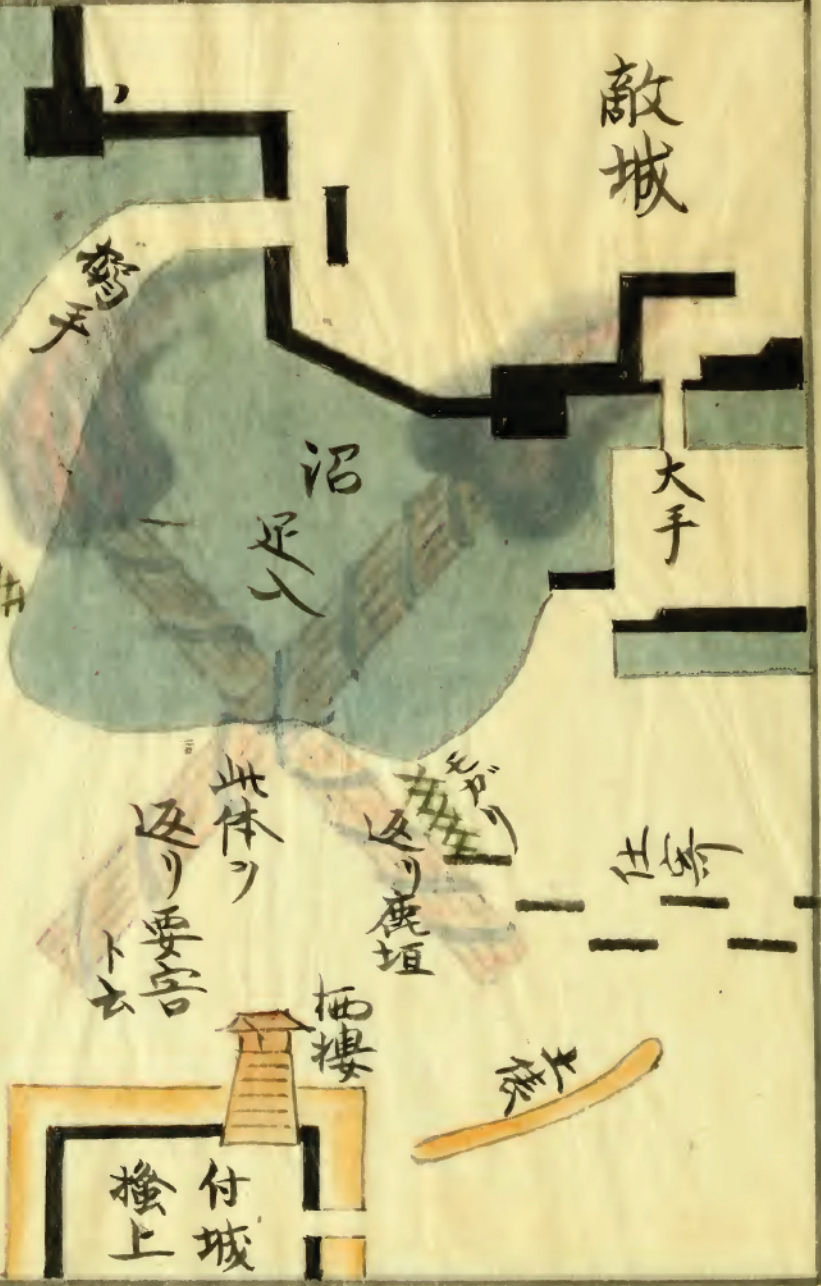 敵城
大手
搦手
沼
足入
モガリ
仕寄
返リ鹿垣
此体ヲ
返リ要害
ト云
栖樓
土俵
付城
掻上